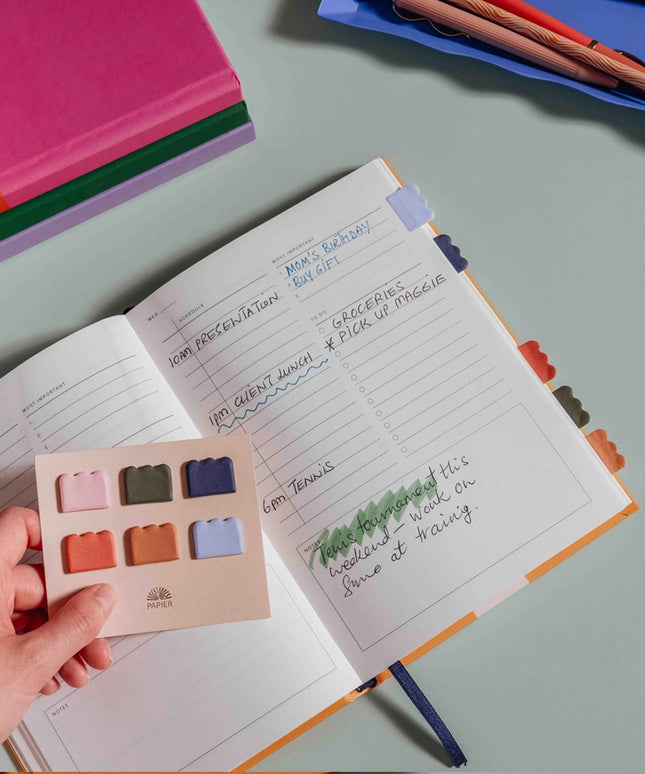 MOST IMPORTANT
1.
2.
3.
NOTES
PAPIER
WED
SCHEDULE
10AM PRESENTATION
1pm CLIENT LUNCH
6pm TENNIS
MOST IMPORTANT
1. MOM'S BIRTHDAY
2. BUY GIFT
3.
TO DO
GROCERIES
PICK UP MAGGIE
NOTES
Tenis tournament this
weekend - work on
at training.